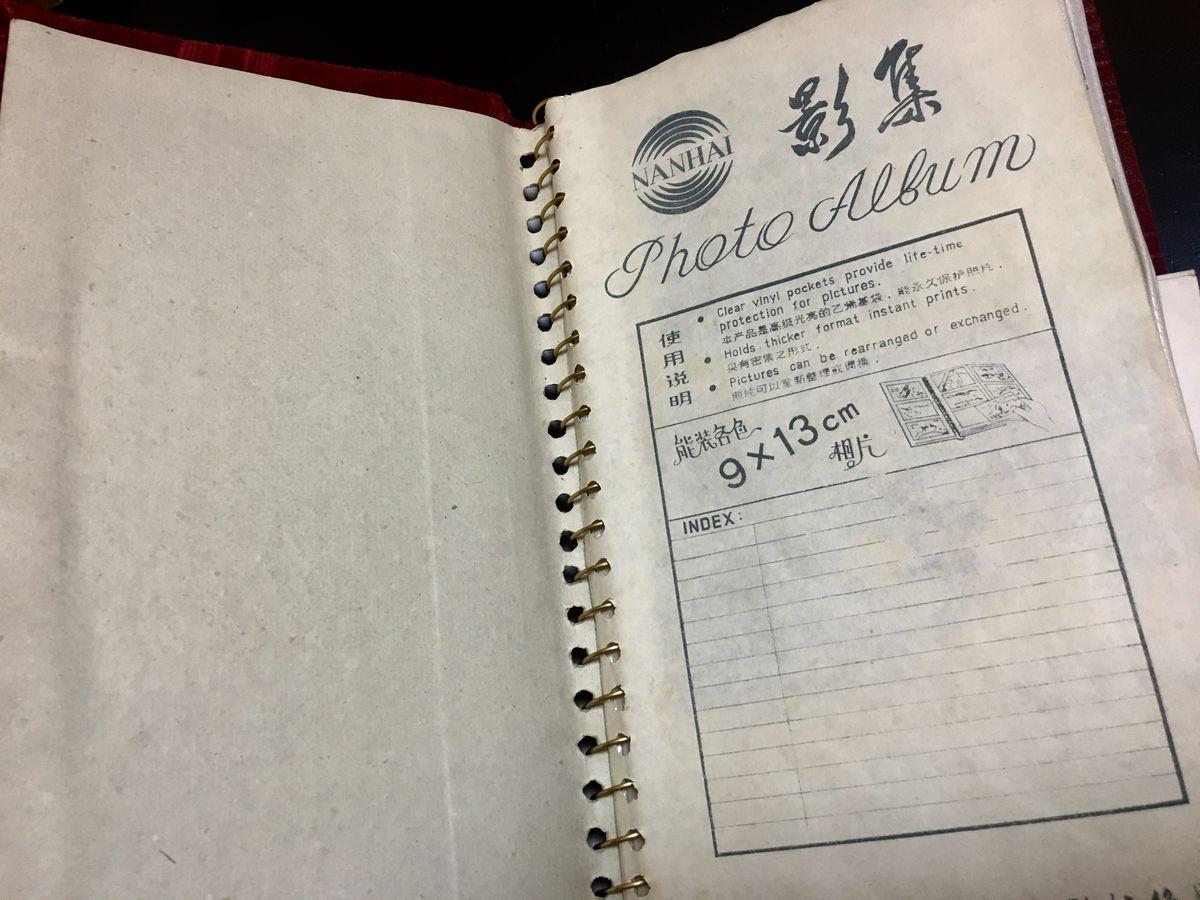 NANHAI
影集
Photo Album
使用说明
• Clear vinyl pockets provide life-time
protection for pictures.
本产品是高级光亮的乙烯基袋．能永久保护照片．
• Holds thicker format instant prints.
具有密集之形式．
• Pictures can be rearranged or exchanged.
照片可以重新整理或调换．
能装各色
9×13cm
相片
INDEX: